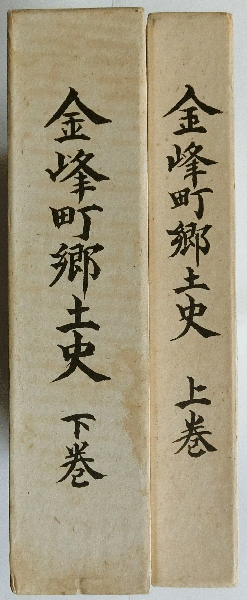 金峰町郷土史 上巻
金峰町郷土史 下巻